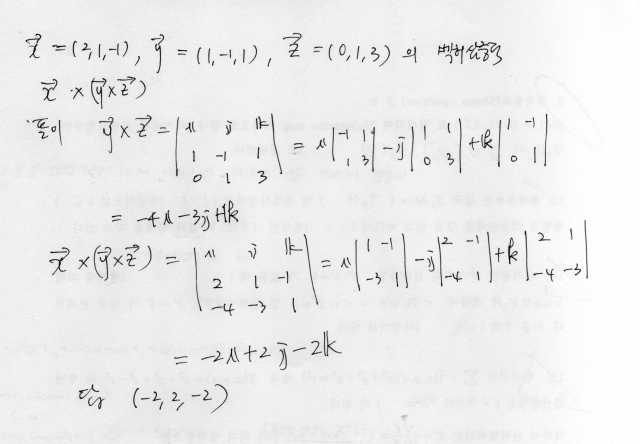 x⃗ = (2,1,-1), y⃗ = (1,-1,1), z⃗ = (0,1,3) 의 벡터삼중적
x⃗ × (y⃗ × z⃗)
풀이 y⃗ × z⃗ = | i j k ; 1 -1 1 ; 0 1 3 | = i | -1 1 ; 1 3 | - j | 1 1 ; 0 3 | + k | 1 -1 ; 0 1 |
= -4i - 3j + k
x⃗ × (y⃗ × z⃗) = | i j k ; 2 1 -1 ; -4 -3 1 | = i | 1 -1 ; -3 1 | - j | 2 -1 ; -4 1 | + k | 2 1 ; -4 -3 |
= -2i + 2j - 2k
답 (-2, 2, -2)